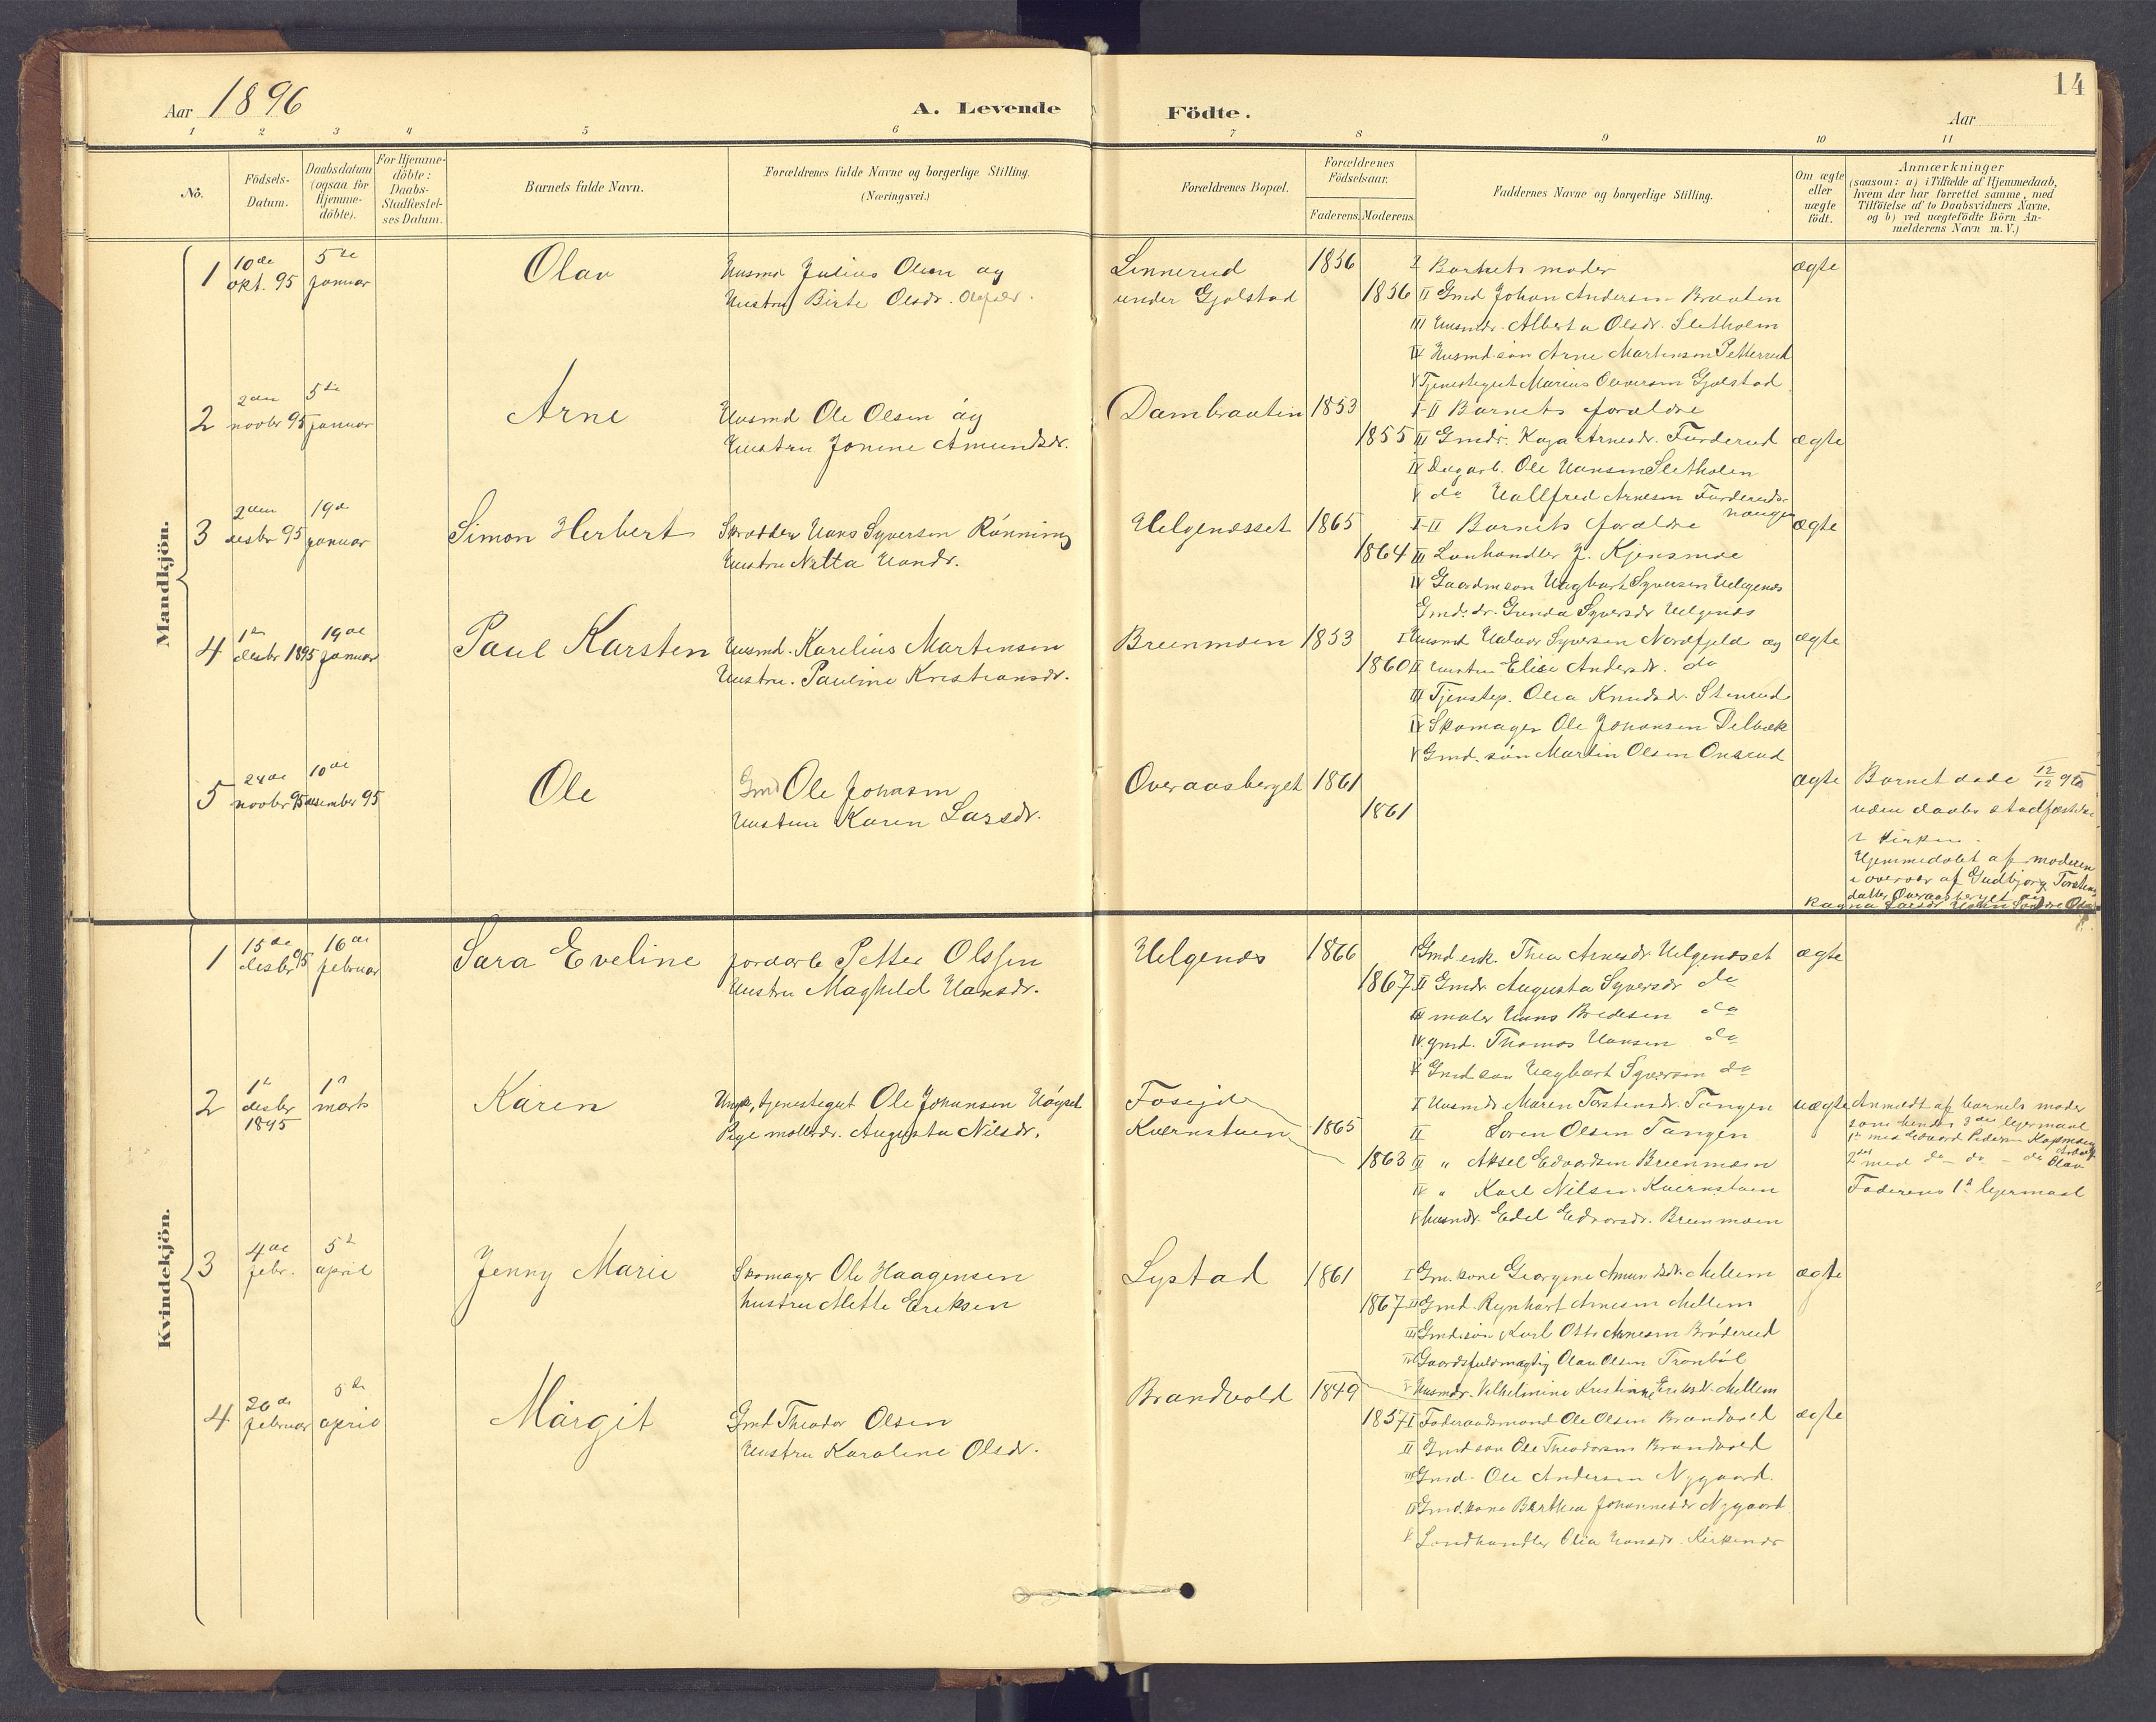 14
Aar 1896
A. Levende Födte.
Aar
1 2 3 4 5 6 7 8 9 10 11
No.
Födsels-Datum.
Daabsdatum (ogsaa for Hjemme-döbte).
For Hjemme-döbte: Daabs-Stadfæstel-ses Datum.
Barnets fulde Navn.
Forældrenes fulde Navne og borgerlige Stilling.
(Næringsvei.)
Forældrenes Bopæl.
Forældrenes Födselsaar.
Faderens. Moderens.
Faddernes Navne og borgerlige Stilling.
Om ægte eller uægte födt.
Anmærkninger
(saasom: a) i Tilfælde af Hjemmedaab,
hvem der har forrettet samme, med
Tilföielse af to Daabsvidners Navne,
og b) ved uægtefödte Börn An-
melderens Navn m. V.)
Mandkjön.
1 10de okt. 95 5te januar
Olav
Husmd Julius Olsen og
Hustru Birte Olsdr.
Linnerud
under Gjølstad
1856
1856
I Barnets moder
II Gmd Johan Andersen Braaten
III Husmdr. Alberta Olsdr. Sletholen
IV Husmd.søn Arne Martinsen Petterrud
V Tjenestegut Marius Oliversen Gjølstad
ægte
2 2den novbr 95 5te januar
Arne
Husmd Ole Olsen og
Hustru Jonine Amundsdr.
Dambraaten
1853
1855
I-II Barnets forældre
III Gmdr. Kaja Arnesdr. Furderud
IV Dagarb. Ole Hansen Sletholen
V do Hallfred Arnesen Furderuds-
haugen
ægte
3 2den desbr 95 19de januar
Simon Herbert
Skrædder Hans Syversen Rönning
Hustru Netta Hansdr.
Helgenæsset
1865
1864
I-II Barnets forældre
III Lanhandler J. Kjensmoe
IV Gaardm.søn Hagbart Syversen Helgenæs
Gmd. dr. Gunda Syversdr Helgenæs
ægte
4 1ste desbr 1895 19de januar
Paul Karsten
Husmd. Karelius Martinsen
Hustru. Pauline Kristiansdr.
Breenmoen
1853
1860
I Husmd Halvor Syversen Nordfjeld og
II Hustru Elise Andersdr. do
III Tjenstep. Olea Knudsdr. Stenrud
IV Skomager Ole Johansen Delbæk
V Gmd. sön Martin Olsen Onsrud
ægte
5 24de novbr 95 10de desember 95
Ole
Gmd Ole Johasen
Hustru Karen Larsdr.
Overaasberget
1861
1861
ægte
Barnet døde 12/12 95
uden daabs stadfæstelse
i kirken.
Hjemmedøbt af moderen
i overvær af Gudbjørg Torstens
datter Overaasberget og
Kvindekjön.
1 15de desbr 95 16de februar
Sara Eveline
Jordarb Petter Olssen
Hustru Maghild Hansdr.
Helgenæs
1866
1867
I Gmd enk. Thea Arnesdr. Helgenæset
II Gmdr. Augusta Syversdr do
III maler Hans Bredesen do
IV gmd. Thomas Hansen do
V Gmd søn Hagbart Syversen do
ægte
2 1ste desbr 1895 1ste marts
Karen
Ungk, tjenestegut Ole Johansen Höyset
Pige mölldr. Augusta Nilsdr.
Kværnstuen
1865
1863
I Husmdr Maren Torstensdr. Tangen
II Søren Olsen Tangen
III " Aksel Edvardsen Breenmoen
IV " Karl Nilsen Kværnstuen
V husmdr. Edel Edvarsdr. Breenmoen
uægte
Anmeldt af barnets moder
som hendes 3die lejermaal
1ste med Edvard Pedersen
2det med do do do Olav
Faderens 1ste lejermaal
3 4de febr. 5te april
Jenny Marie
Skomager Ole Haagensen
hustru Mette Eriksen
Lystad
1861
1867
I Gm. kone Georgine Amundsdr. Mellem
II Gmd. Reynhart Arnesen Mellem
III Gmd.søn Karl Otto Arnesen Bröderud
IV Gaardsfuldmægtig Olav Olsen Tronböl
V Husmdr. Vilhelmine Kristine Eriksdr. Mellem
ægte
4 26de februar 5te april
Margit
Gmd Theodor Olsen
Hustru Karoline Olsdr.
Brandvold
1849
1857
I Føderaadsmand Ole Olsen Brandvold
II Gmd søn Ole Theodorsen Brandvold
III Gmd. Ole Andersen Nygaard.
IV Gmd.kone Berthea Johannesdr Nygaard
V Landhandler Olia Hansdr. Kirkenær
ægte